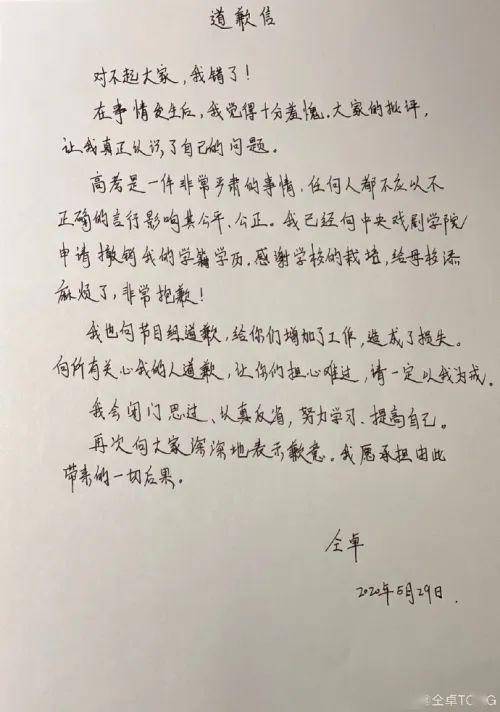 道歉信
对不起大家，我错了！
在事情发生后，我觉得十分羞愧，大家的批评，
让我真正认识了自己的问题。
高考是一件非常严肃的事情，任何人都不应以不
正确的言行影响其公平、公正。我已经向中央戏剧学院
申请撤销我的学籍学历，感谢学校的栽培，给母校添
麻烦了，非常抱歉！
我也向节目组道歉，给你们增加了工作，造成了损失。
向所有关心我的人道歉，让你们担心难过，请一定以我为戒。
我会闭门思过、认真反省，努力学习、提高自己。
再次向大家深深地表示歉意。我愿承担由此
带来的一切后果。
仝卓
2020年5月29日.
@仝卓TO G